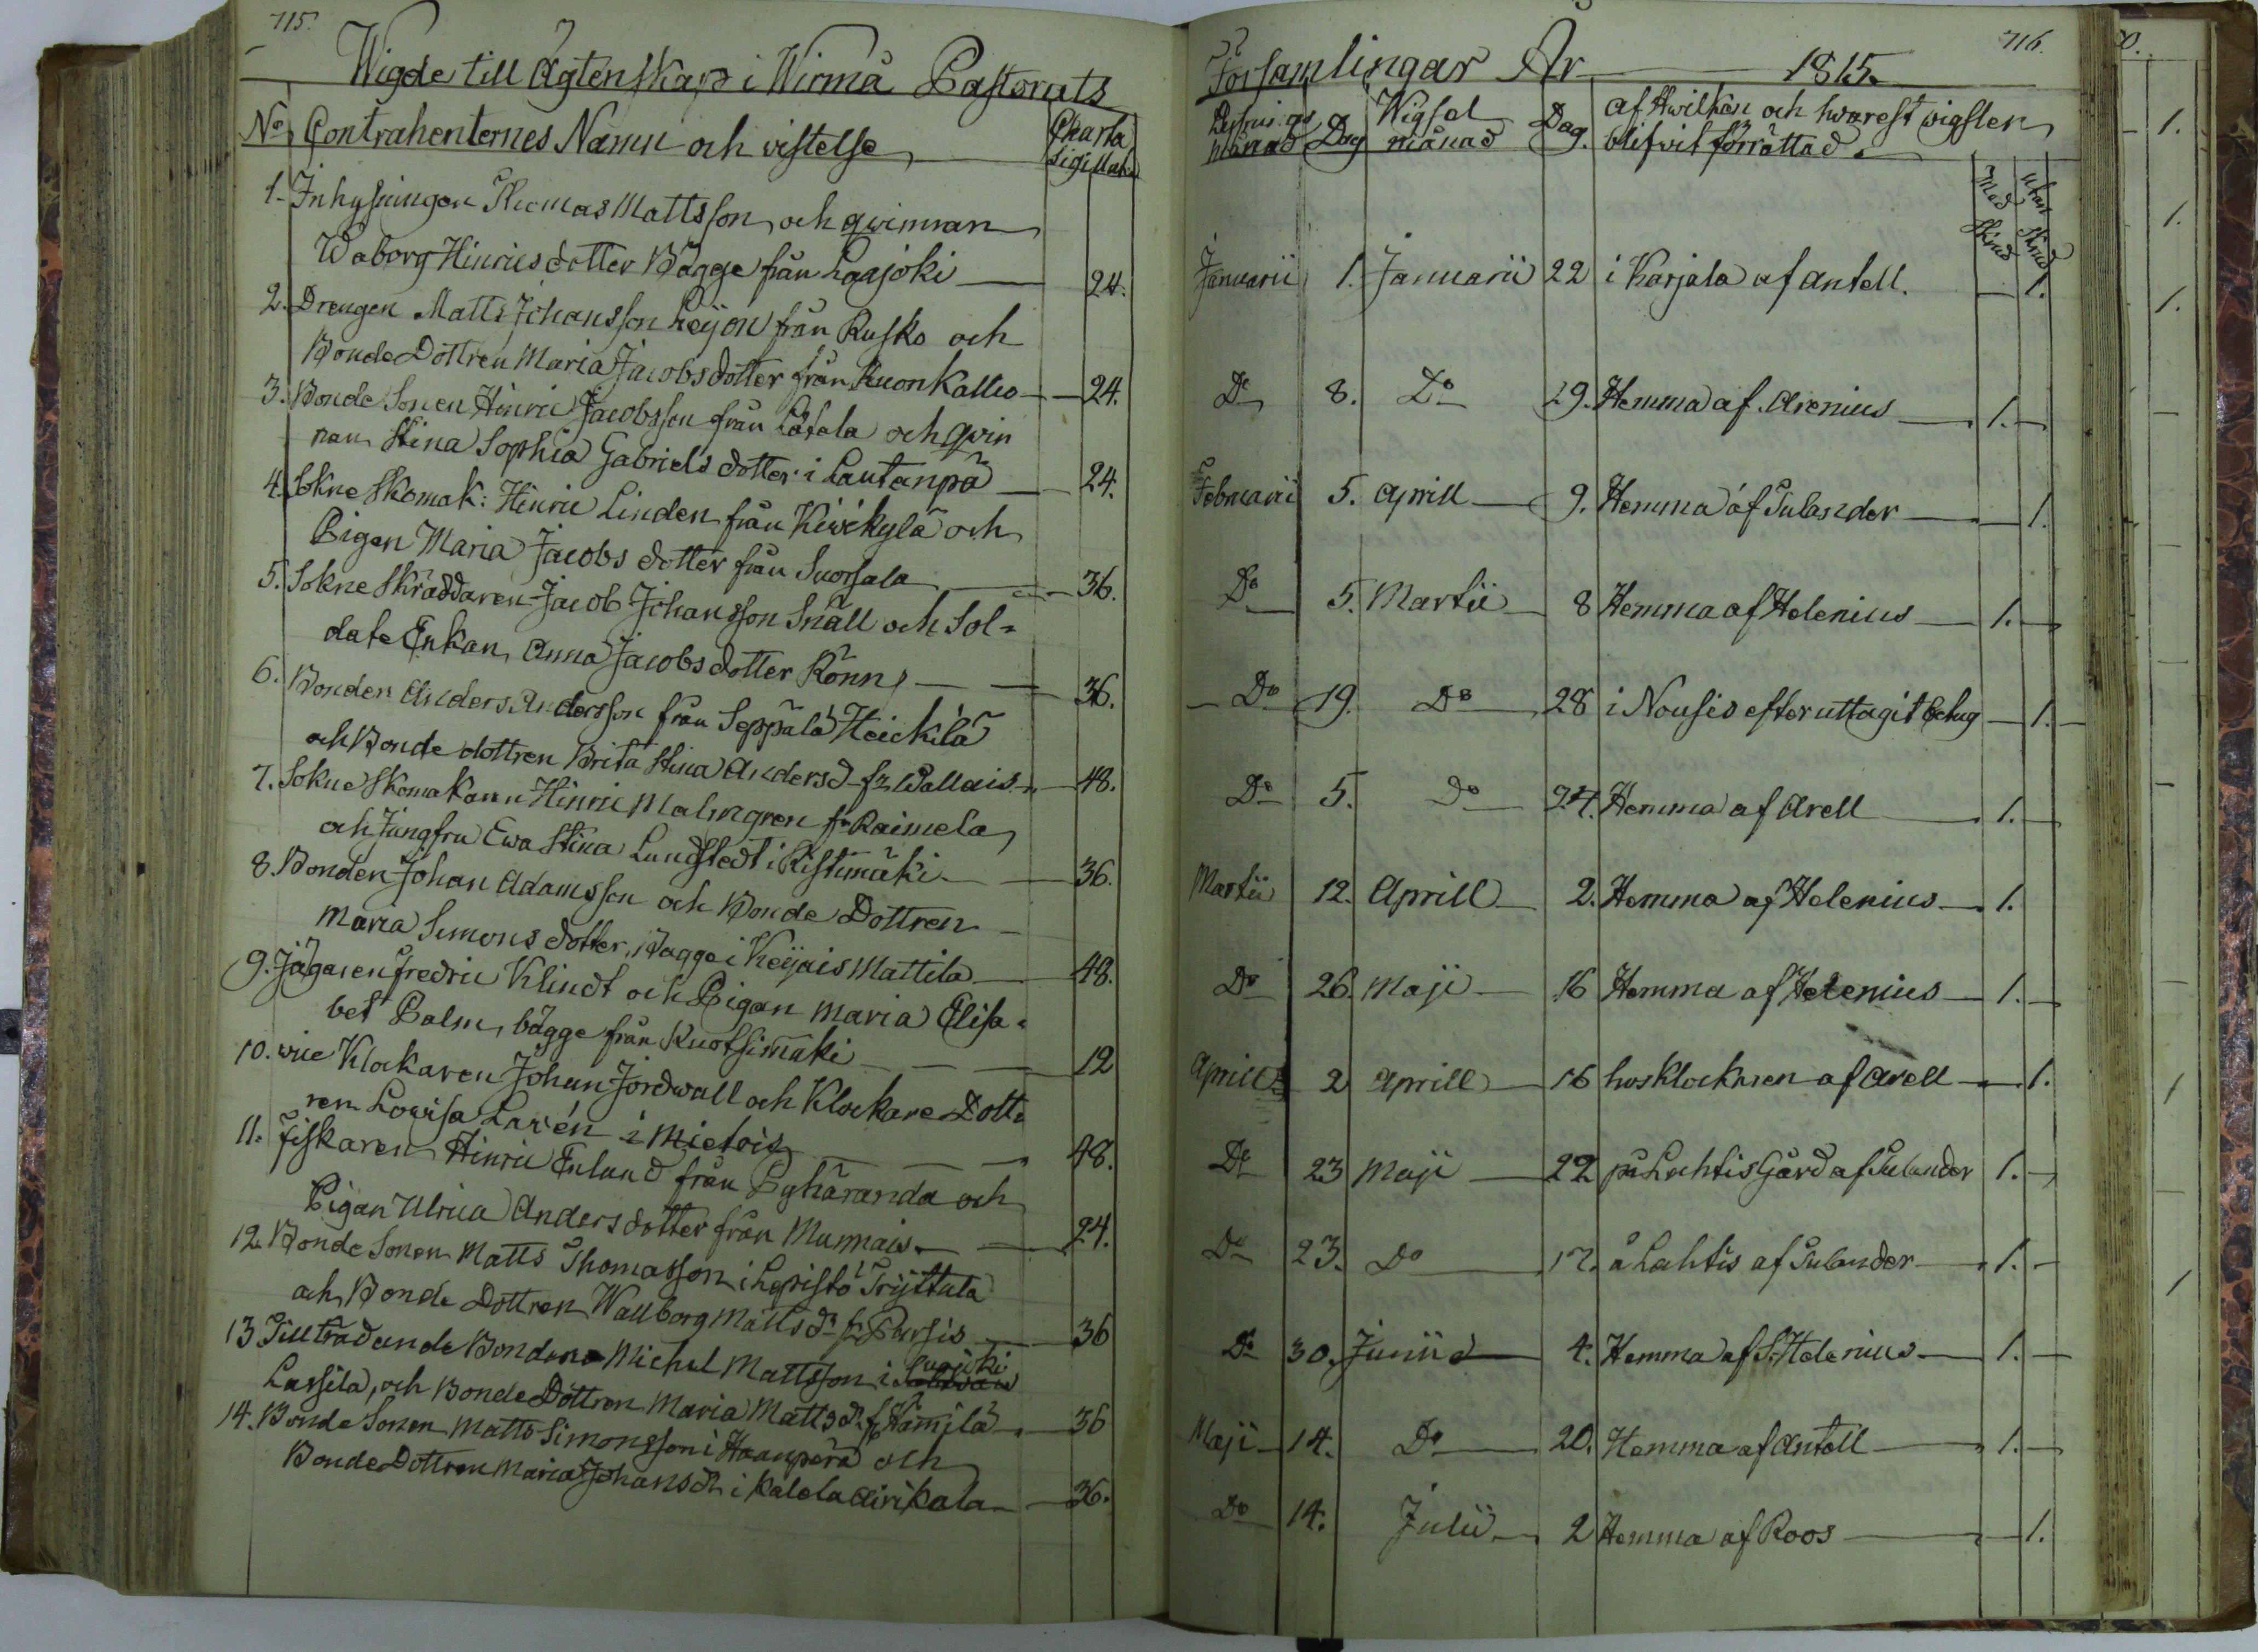 715.
Wigde till Ägtenskap i Wirmå Pastorats
No Contrahenternes Namn och vistelse
Charta
Sigillat
1. Inhysingen Thomas Mattsson och qwinnan
Waborg Hinricsdotter Bägge från Laajoki 24.
2. Drengen Matts Johansson Leijon från Rusko och
Bonde Dottren Maria Jacobsdotter från Kuonkallio 24.
3. Bonde Sonen Hinric Jacobsson från och Qwin
nan Stina Sophia Gabriels dotter i Lautanpä 24.
4. Sokne Skomak: Hinric Linden från Kiwikylä och
Pigan Maria Jacobs dotter från Suorsala 36.
5. Sokne Skräddaren Jacob Johansson Snäll och Sol=
date Enkan Anna Jacobsdotter Rönn 36.
6. Bonden Anders Andersson från Seppälä Heickilä
och Bonde dottren Brita Stina Andersd fr Wallais 48.
7. Sokne Skomakaren Hinric Malmgren fr Raimela
och Jungfru Ewa Stina Lundstedt i Ristimäki 36.
8. Bonden Johan Adamsson och Bonde Dottren
Maria Simons dotter, Bägge i Keijais Mattila 48.
9. Jägaren Fredric Klindt och Pigan Maria Elisa=
bet Palm, bägge från Ruotsimäki 12
10. vice Klockaren Johan Jordwall och Klockare Dott=
ren Lovisa Lavén i Mietois 48.
11. Fiskaren Hinric Enlund från Pyhäranda och
Pigan Ulrica Anders dotter från Munnais 24.
12. Bonde Sonen Matts Thomasson i Lepistö Trijttula
och Bonde Dottren Wallborg Matts dr fr Pursis 36
13 Tillträdande Bonden Michel Mattsson i Laajoki
Lassila, och Bonde Dottren Maria Matts dr fr Hämilä 36
14. Bonde Sonen Matts Simonsson i Haanperä och
Bonde Dottren Maria Johans dr i Kalela Airikala 36.
716.
Församlingar År 1815.
månad Dag Wigsel månad Dag. af Hwilken och hwarest wigslen
blifvit förrättad.
Med Skind
utan Skind
Januarii 1. Januarii 22 i Karjala af Antell. 1.
Do 8. Do 29. Hemma af Arenius 1.
Februarii 5. Aprill 9. Hemma af Sulander 1.
Do 5. Martii 8 Hemma af Helenius 1.
Do 19. Do 28 i Nousis efter uttagit betyg 1.
Do 5. Do 24. Hemma af Arell 1.
Martii 12. Aprill 2. Hemma af Helenius 1.
Do 26. Maji 16 Hemma af Helenius 1.
Aprill 2 Aprill 16 hos Klockaren af Arell 1.
Do 23 Maji 22 på Lahtis Gård af Sulander 1.
Do 23. Do 17. å Lahtis af Sulander 1.
Do 30. Junii 4. Hemma af S. Helenius 1.
Maji 14. Do 20. Hemma af Antell 1.
Do 14. Julii 2 Hemma af Roos 1.